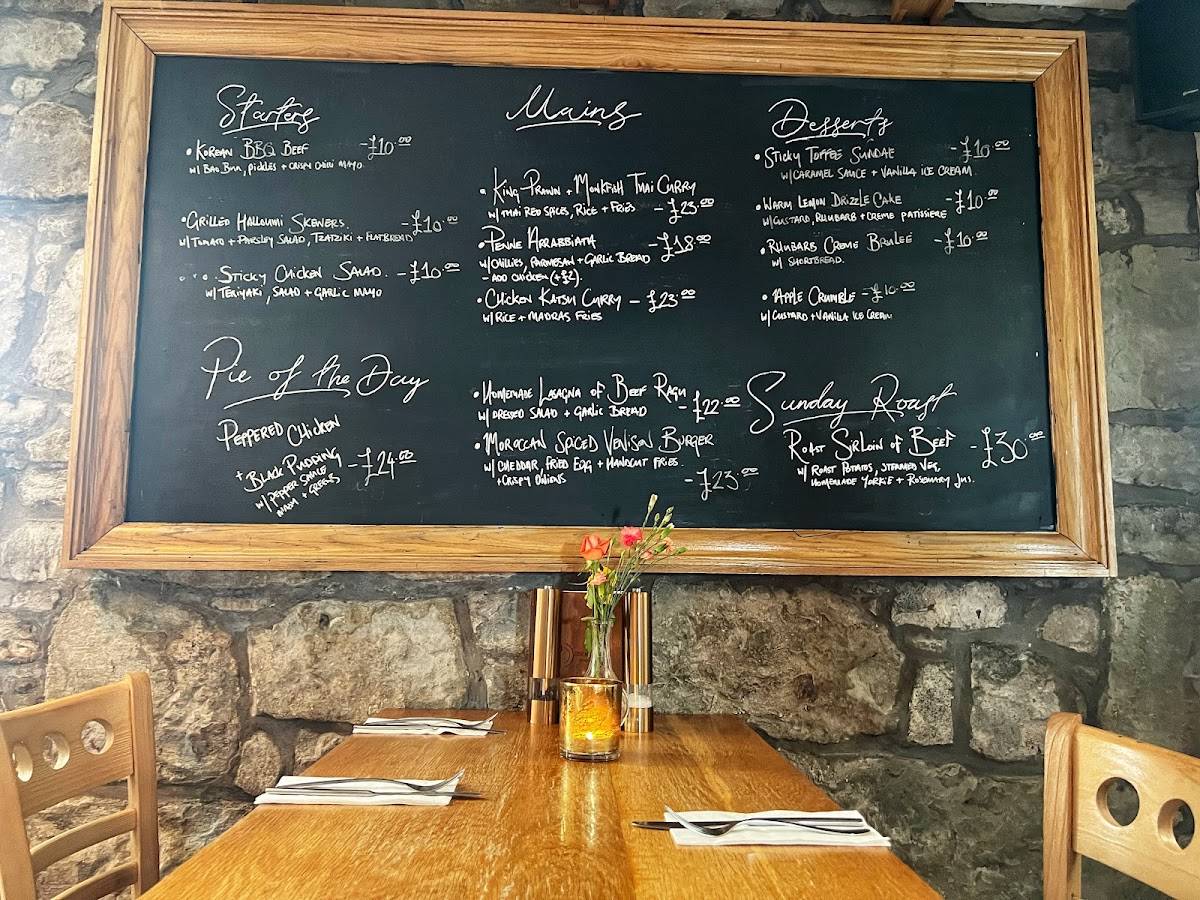 Starters
• KOREAN BBQ BEEF -£10.00
W/ BAO BUN, PICKLES + CRISPY CHILLI MAYO
• GRILLED HALLOUMI SKEWERS -£10.00
W/ TOMATO + PARSLEY SALAD, TZATZIKI + FLATBREAD
• STICKY CHICKEN SALAD. -£10.00
W/ TERIYAKI, SALAD + GARLIC MAYO
Pie of the Day
PEPPERED CHICKEN
+ BLACK PUDDING -£24.00
W/ PEPPER SAUCE
MASH + GREENS
Mains
• KING PRAWN + MONKFISH THAI CURRY
W/ THAI RED SPICES, RICE + FRIES -£23.00
• PENNE ARRABBIATA -£18.00
W/ CHILLIES, PARMESAN + GARLIC BREAD
- ADD CHICKEN (+£2).
• CHICKEN KATSU CURRY -£23.00
W/ RICE + MADRAS FRIES
• HOMEMADE LASAGNA OF BEEF RAGU
W/ DRESSED SALAD + GARLIC BREAD -£22.00
• MOROCCAN SPICED VENISON BURGER
W/ CHEDDAR, FRIED EGG + HANDCUT FRIES.
+ CRISPY ONIONS -£23.00
Desserts
• STICKY TOFFEE SUNDAE -£10.00
W/ CARAMEL SAUCE + VANILLA ICE CREAM
• WARM LEMON DRIZZLE CAKE -£10.00
W/ CUSTARD, RHUBARB + CREME PATISSIERE
• RHUBARB CREME BRULEE -£10.00
W/ SHORTBREAD.
• APPLE CRUMBLE -£10.00
W/ CUSTARD + VANILLA ICE CREAM
Sunday Roast
ROAST SIRLOIN OF BEEF -£30.00
W/ ROAST POTATOS, STEAMED VEG,
HOMEMADE YORKIE + ROSEMARY JUS.